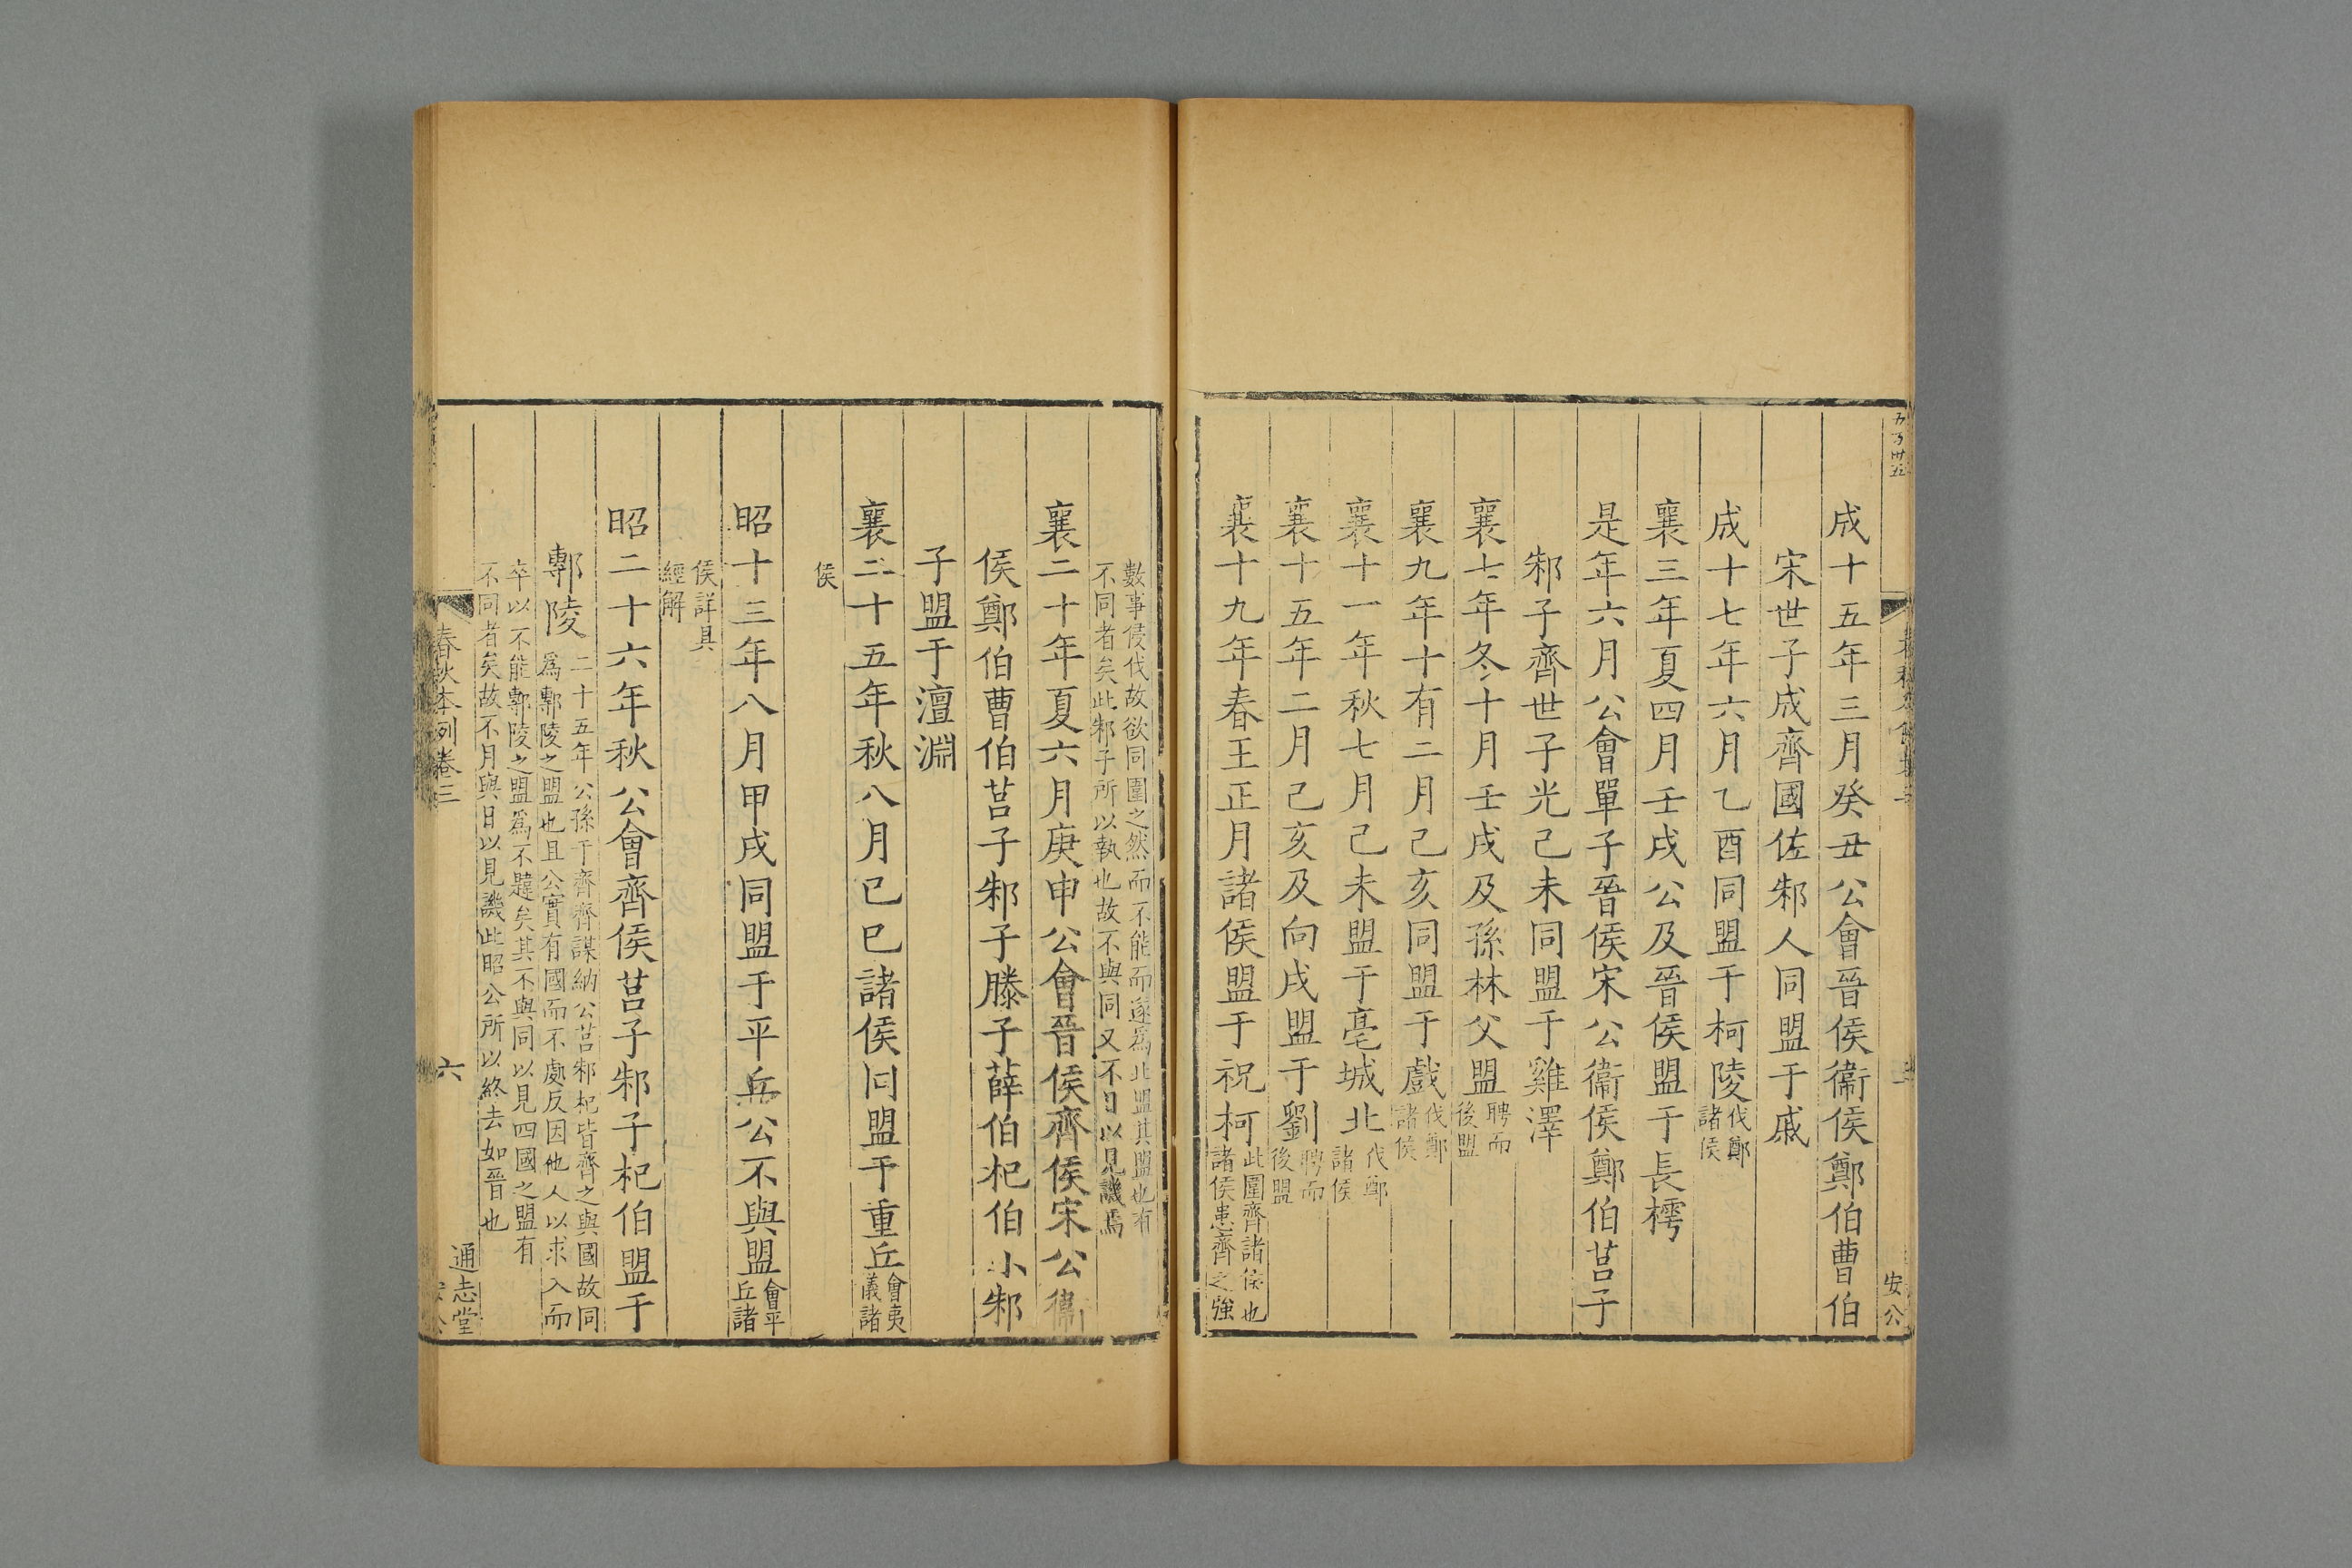 成十五年三月癸丑公會晉侯衞侯鄭伯曹伯
宋世子成齊國佐邾人同盟于戚
成十七年六月乙酉同盟于柯陵伐鄭
諸侯
襄三年夏四月壬戌公及晉侯盟于長樗
是年六月公會單子晉侯宋公衞侯鄭伯莒子
邾子齊世子光己未同盟于雞澤
襄七年冬十月壬戌及孫林父盟聘而
後盟
襄九年十有二月己亥同盟于戲伐鄭
諸侯
襄十一年秋七月己未盟于亳城北伐鄭
諸侯
襄十五年二月己亥及向戌盟于劉聘而
後盟
襄十九年春王正月諸侯盟于祝柯此圍齊諸侯也
諸侯患齊之強
安公
數事侵伐故欲同圍之然而不能而遂爲此盟其盟也有
不同者矣此邾子所以執也故不與同又不日以見譏焉
襄二十年夏六月庚申公會晉侯齊侯宋公衞
侯鄭伯曹伯莒子邾子滕子薛伯杞伯小邾
子盟于澶淵
襄二十五年秋八月己巳諸侯同盟于重丘會夷
儀諸
侯
昭十三年八月甲戌同盟于平丘公不與盟會平
丘諸
侯詳具
經解
昭二十六年秋公會齊侯莒子邾子杞伯盟于
鄟陵二十五年公孫于齊齊謀納公莒邾杞皆齊之與國故同
爲鄟陵之盟也且公實有國而不處反因他人以求入而
卒以不能鄟陵之盟爲不韙矣其不與同以見四國之盟有
不同者矣故不月與日以見譏此昭公所以終去如晉也
春秋本例卷三
六
通志堂